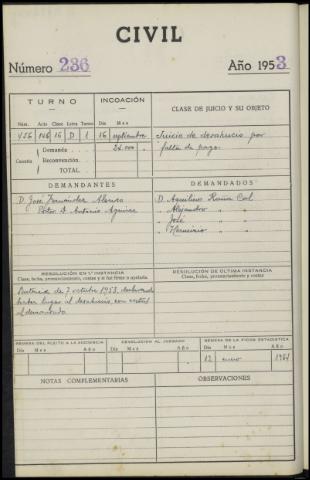 CIVIL
Número 236 Año 1953
TURNO INCOACIÓN CLASE DE JUICIO Y SU OBJETO
Núm. Acto Clase Letra Turno Día Mes
456 16 D 1 16 septiembre Juicio de desahucio por
Cuantía Demanda 24.000 falta de pago.
Reconvención.
TOTAL.
DEMANDANTES DEMANDADOS
D. José Fernández D. Aquilino
D. Antonio Aguirre " Alejandro "
" José "
" Herminio "
RESOLUCIÓN EN 1.ª INSTANCIA RESOLUCIÓN DE ÚLTIMA INSTANCIA
Clase, fecha, pronunciamiento, costas y si fué firme o apelada. Clase, fecha, pronunciamiento y costas
Sentencia de 7 octubre 1953, declarando
haber lugar al desahucio, con costas
al demandado
REMESA DEL PLEITO A LA AUDIENCIA DEVOLUCIÓN AL JUZGADO REMESA DE LA FICHA ESTADÍSTICA
Día Mes Año Día Mes Año Día Mes Año
12 enero 1954
NOTAS COMPLEMENTARIAS OBSERVACIONES